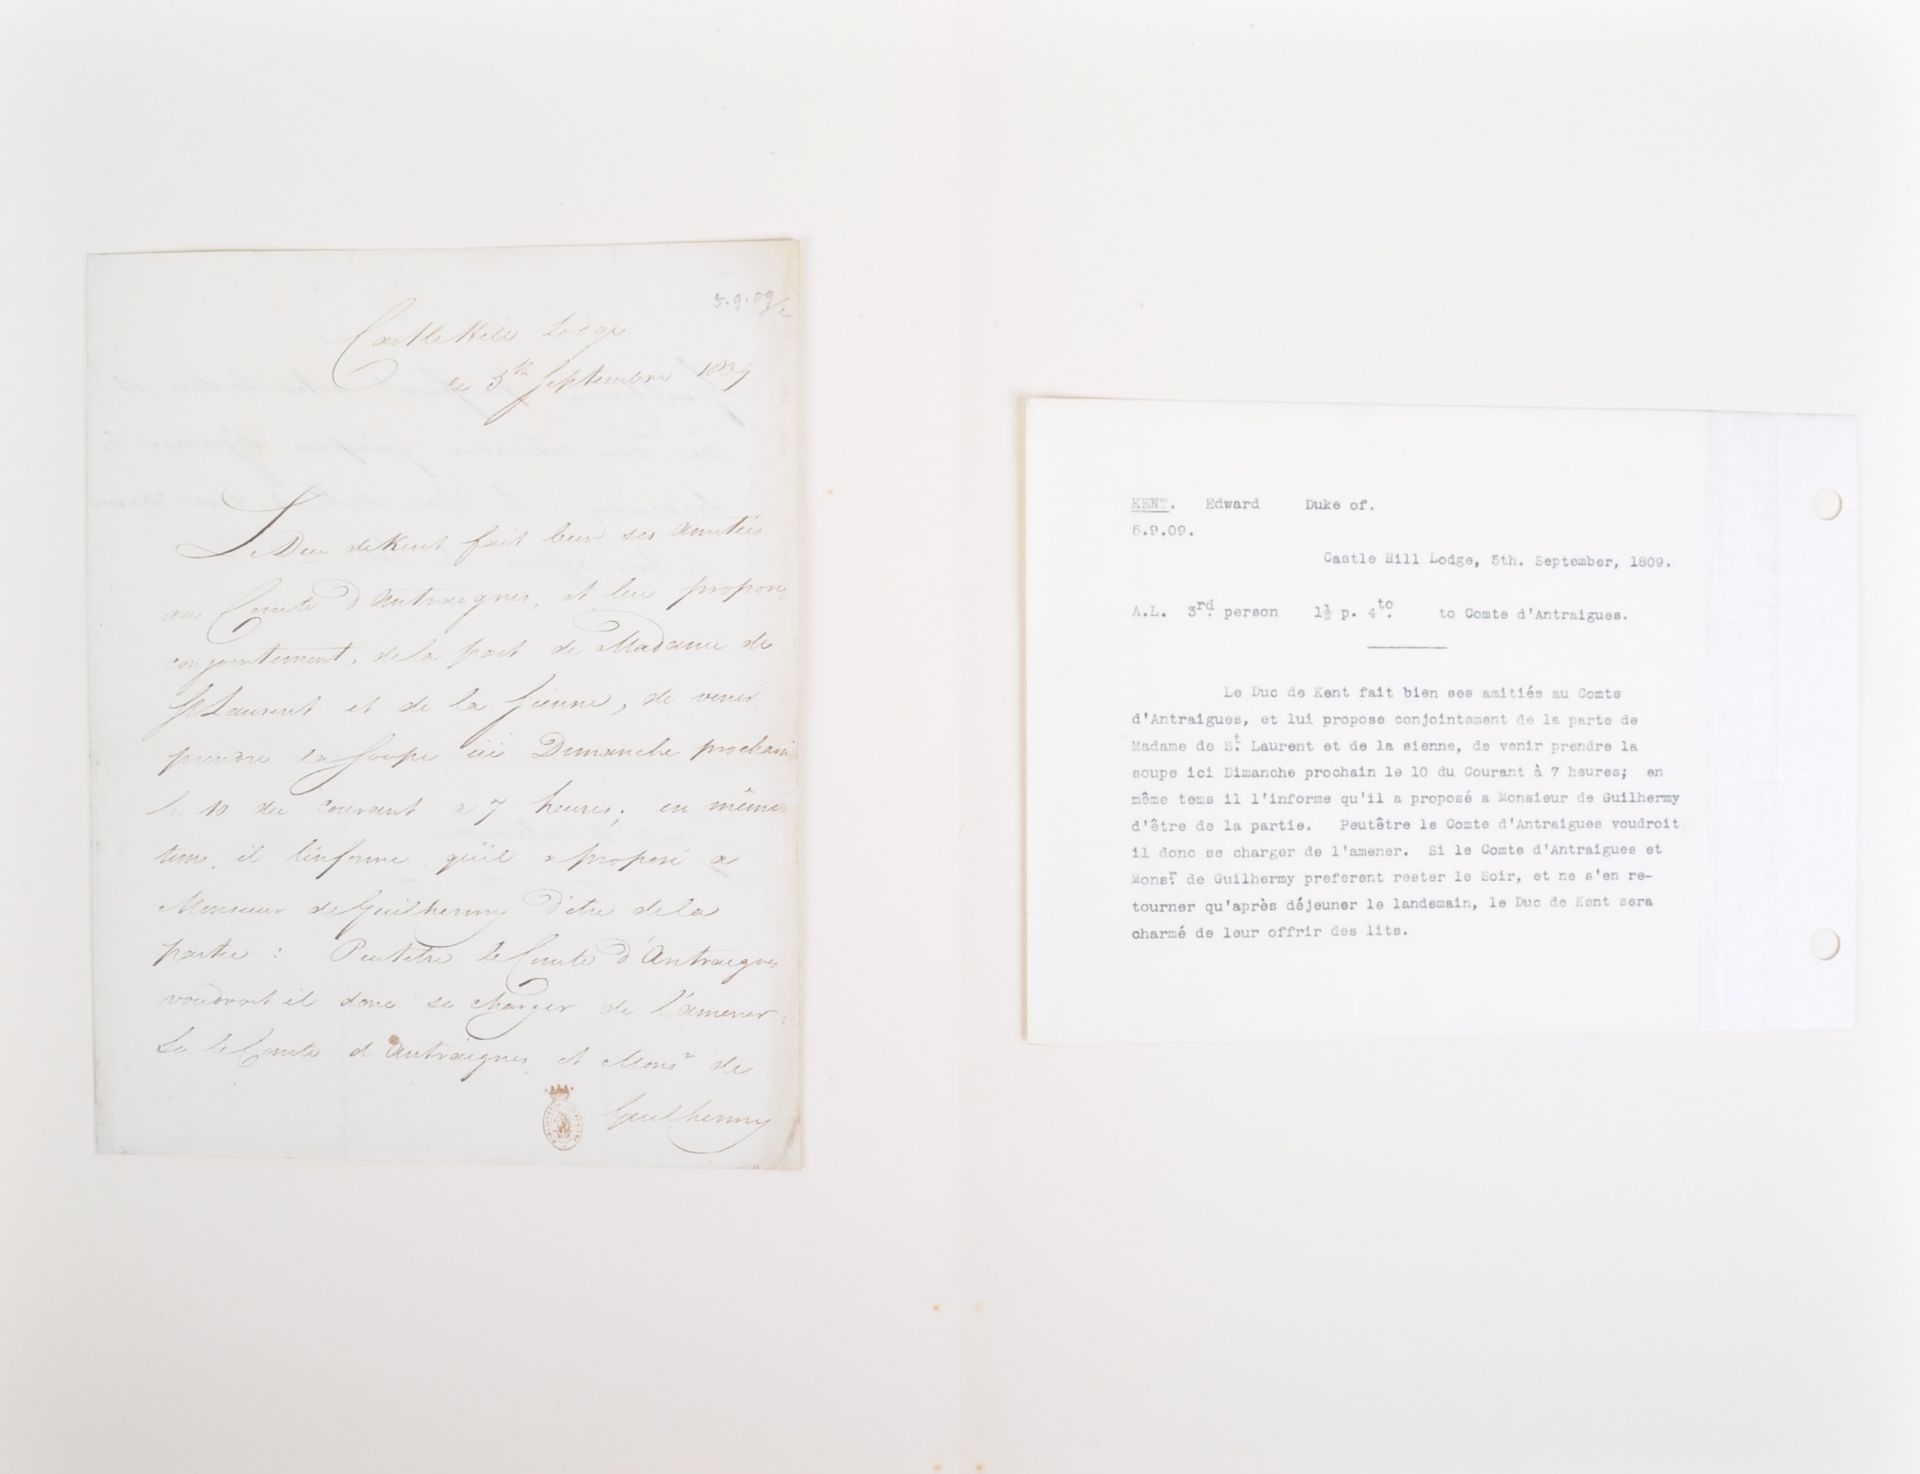 5.9.09
Castle Hill Lodge
le 5th Septembre 1809
Le Duc de Kent fait bien ses amitiés
au Comte d'Antraigues, et lui propose
conjointement, de la part de Madame de
St Laurent et de la Sienne, de venir
prendre la Soupe ici Dimanche prochain
le 10 du courant à 7 heures; en même
tems, il l'informe qu'il a proposé a
Monsieur de Guilhermy d'être de la
partie : Peutêtre le Comte d'Antraigues
voudroit il donc se charger de l'amener.
Si le Comte d'Antraigues, et Monsr de
Guilhermy
KENT. Edward Duke of.
5.9.09.
Castle Hill Lodge, 5th. September, 1809.
A.L. 3rd. person 1½ p. 4to. to Comte d'Antraigues.
Le Duc de Kent fait bien ses amitiés au Comte
d'Antraigues, et lui propose conjointement de la parte de
Madame de St. Laurent et de la sienne, de venir prendre la
soupe ici Dimanche prochain le 10 du Courant à 7 heures; en
même tems il l'informe qu'il a proposé a Monsieur de Guilhermy
d'être de la partie. Peutêtre le Comte d'Antraigues voudroit
il donc se charger de l'amener. Si le Comte d'Antraigues et
Monsr. de Guilhermy preferent rester le Soir, et ne s'en re-
tourner qu'après déjeuner le landemain, le Duc de Kent sera
charmé de leur offrir des lits.